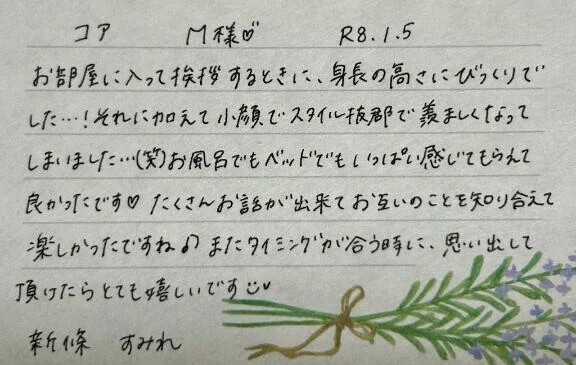 コア M様♡ R8.1.5
お部屋に入って挨拶するときに、身長の高さにびっくりで
した…！それに加えて小顔でスタイル抜群で羨ましくなって
しまいました…(笑)お風呂でもベッドでもいっぱい感じてもらえて
良かったです♡ たくさんお話が出来てお互いのことを知り合えて
楽しかったですね♪ またタイミングが合う時に、思い出して
頂けたらとても嬉しいです
新條 すみれ